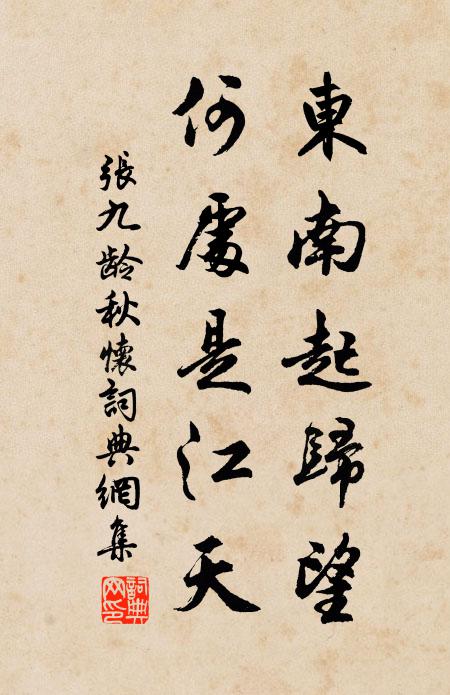 東南起歸望
何處是江天
張九齡秋懷詞典網集
詞典網印